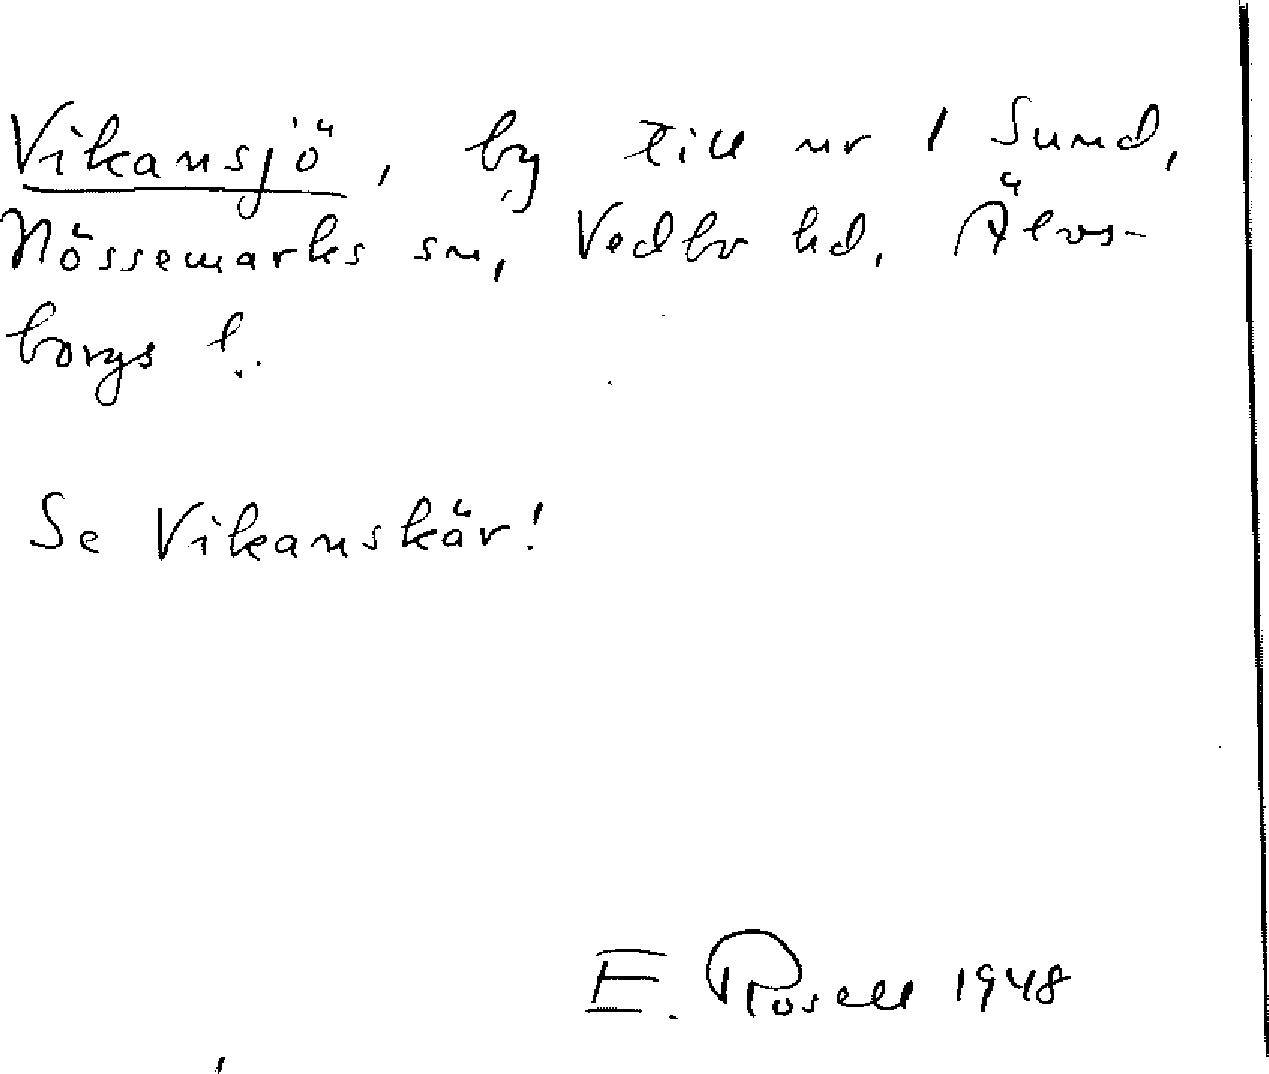 Vikansjö, by till nr 1 Sund,
Nössemarks sn, Vedbo hd, Älvs-
borgs l.
Se Vikanskär!
E. Rosell 1948